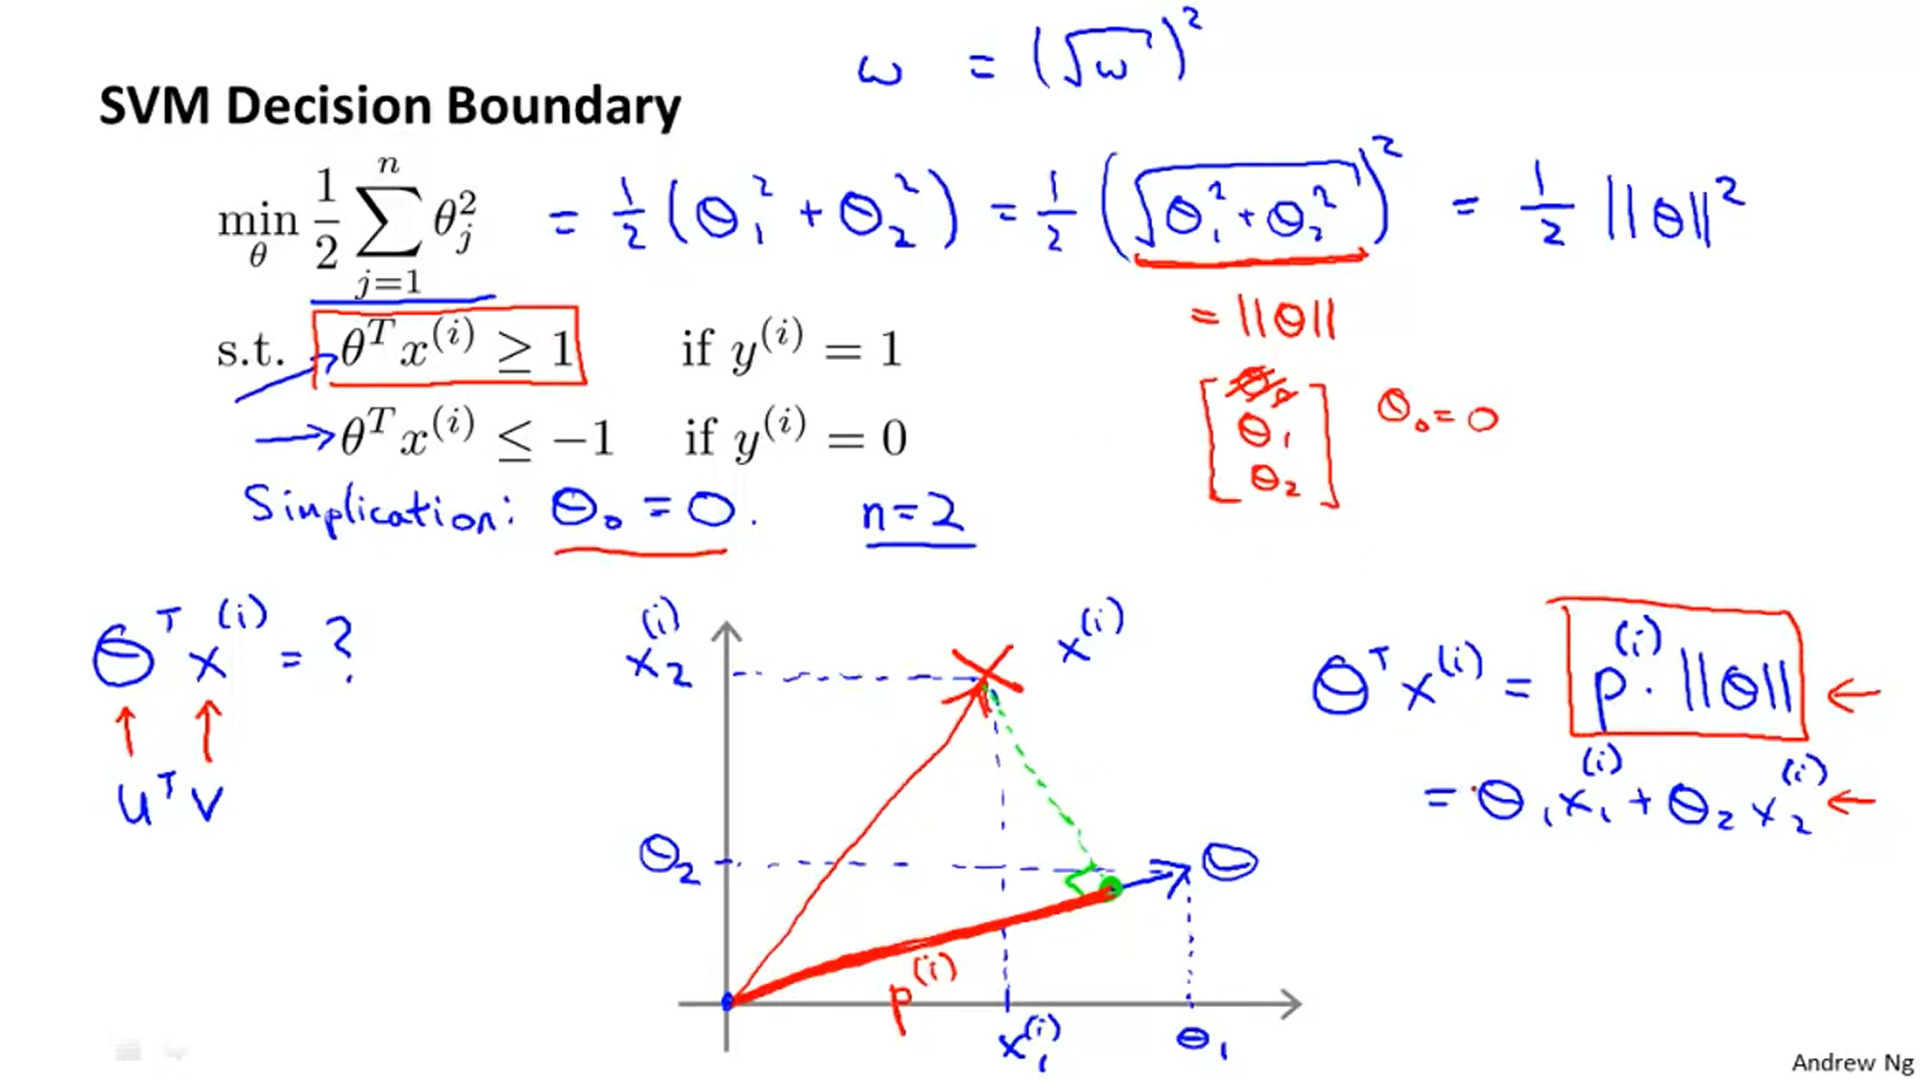 ω = (√ω)²
SVM Decision Boundary
min_θ 1/2 ∑_{j=1}^{n} θ_j² = 1/2 (θ₁² + θ₂²) = 1/2 (√(θ₁² + θ₂²))² = 1/2 ||θ||²
= ||θ||
s.t. θᵀx⁽ⁱ⁾ ≥ 1 if y⁽ⁱ⁾ = 1
→ θᵀx⁽ⁱ⁾ ≤ −1 if y⁽ⁱ⁾ = 0
[θ₀ θ₁ θ₂] θ₀ = 0
Simplication: θ₀ = 0. n = 2
θᵀx⁽ⁱ⁾ = ?
uᵀv
x₂⁽ⁱ⁾
x⁽ⁱ⁾
θ₂
θ
p⁽ⁱ⁾
x₁⁽ⁱ⁾
θ₁
θᵀx⁽ⁱ⁾ = p⁽ⁱ⁾ · ||θ|| ←
= θ₁x₁⁽ⁱ⁾ + θ₂x₂⁽ⁱ⁾ ←
Andrew Ng